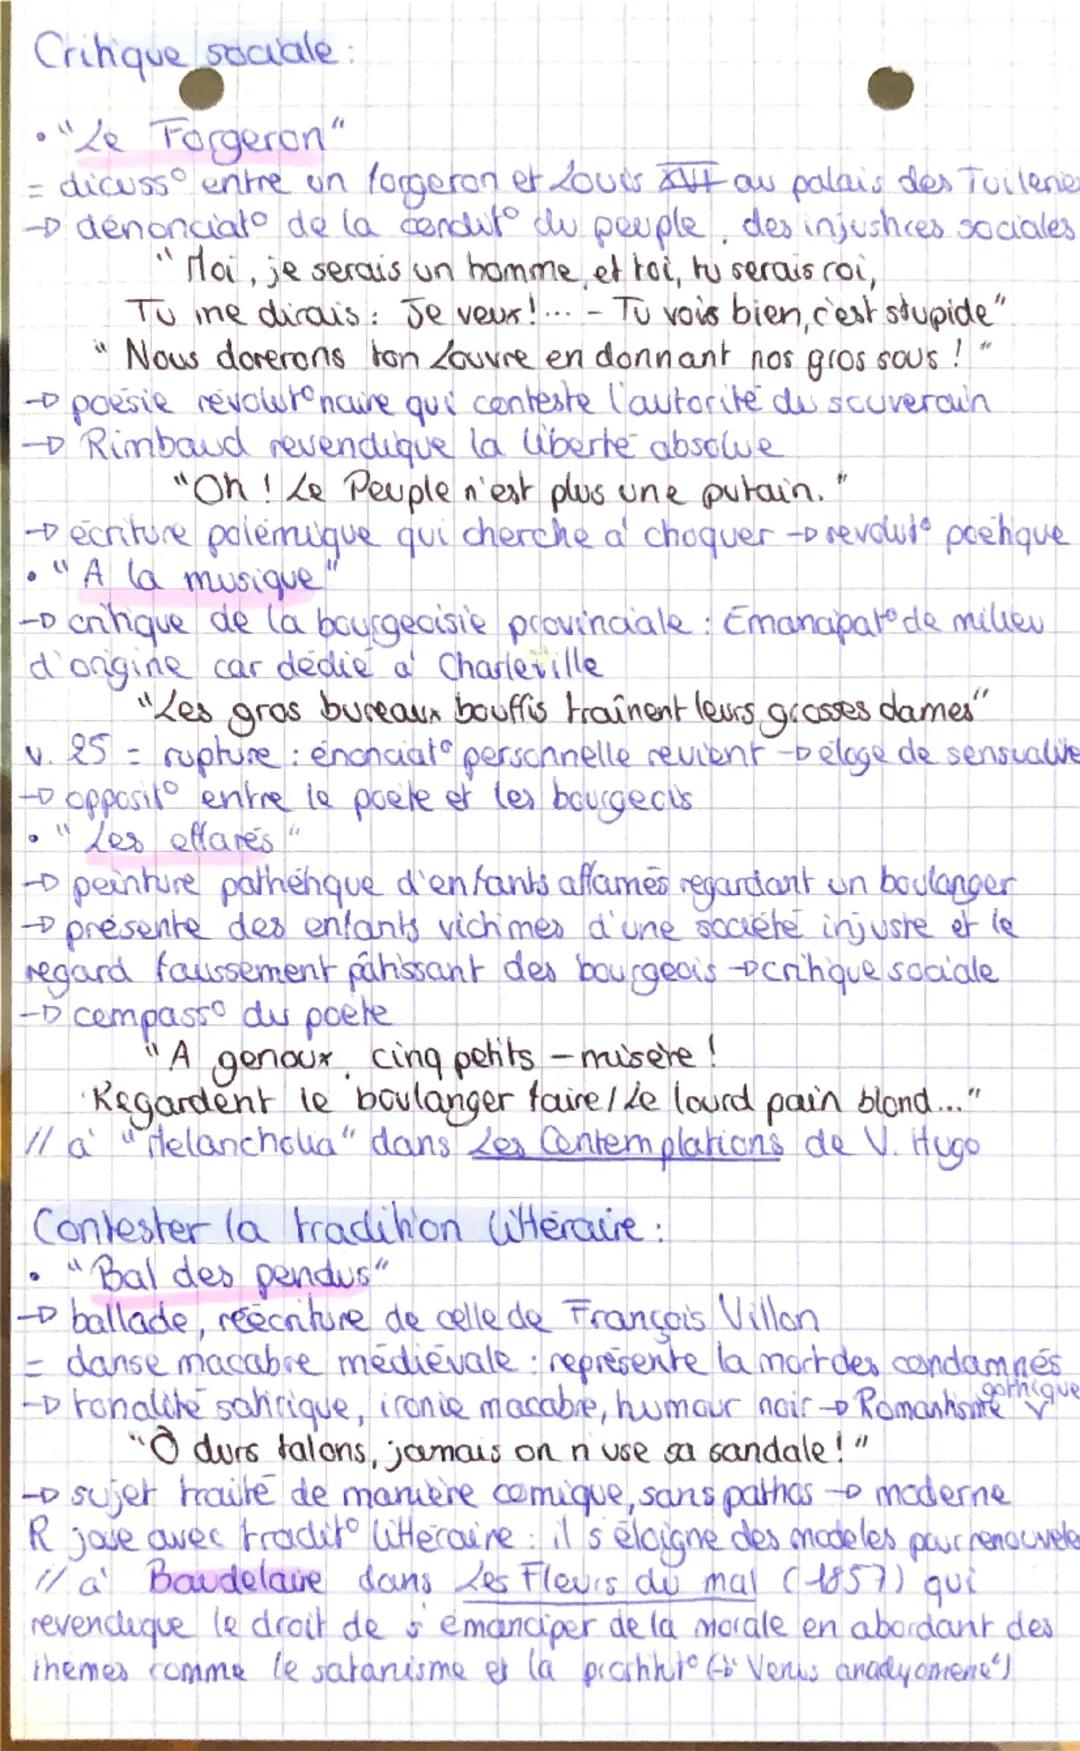 Critique sociale :
• "Le Forgeron"
= dicuss° entre un forgeron et Louis XVI au palais des Tuileries
→ dénonciat° de la condit° du peuple, des injustices sociales
"Moi, je serais un homme, et toi, tu serais roi,
Tu me dirais : Je veux !... - Tu vois bien, c'est stupide"
"Nous dorerons ton Louvre en donnant nos gros sous ! "
→ poésie révolut°naire qui conteste l'autorité du souverain
→ Rimbaud revendique la liberté absolue
"Oh ! Le Peuple n'est plus une putain. "
→ écriture polémique qui cherche à choquer → révolut° poétique
• "A la musique"
→ critique de la bourgeoisie provinciale : Emanapat° de milieu
d'origine car dédié à Charleville
"Les gros bureaux bouffis traînent leurs grosses dames"
v. 25 = rupture : énonciat° personnelle revient → éloge de sensualité
→ opposit° entre le poète et les bourgeois
• "Les effarés"
→ peinture pathétique d'enfants affamés regardant un boulanger
→ présente des enfants victimes d'une société injuste et le
regard faussement pâtissant des bourgeois → critique sociale
→ compass° du poète
"A genoux, cinq petits - misère !
Regardent le boulanger faire / Le lourd pain blond..."
// à "Melancholia" dans Les Contemplations de V. Hugo
Contester la tradition littéraire :
• "Bal des pendus"
→ ballade, réécriture de celle de François Villon
= danse macabre médiévale : représente la mort des condamnés
→ tonalité satirique, ironie macabre, humour noir → Romantisme gothique
"Ô durs talons, jamais on n'use sa sandale ! "
→ sujet traité de manière comique, sans pathos → moderne
R joue avec tradit° littéraire : il s'éloigne des modèles pour renouveler
// à Baudelaire dans Les Fleurs du mal (1857) qui
revendique le droit de s'émanciper de la morale en abordant des
thèmes comme le satanisme et la prostitut° (→ "Venus anadyomène")